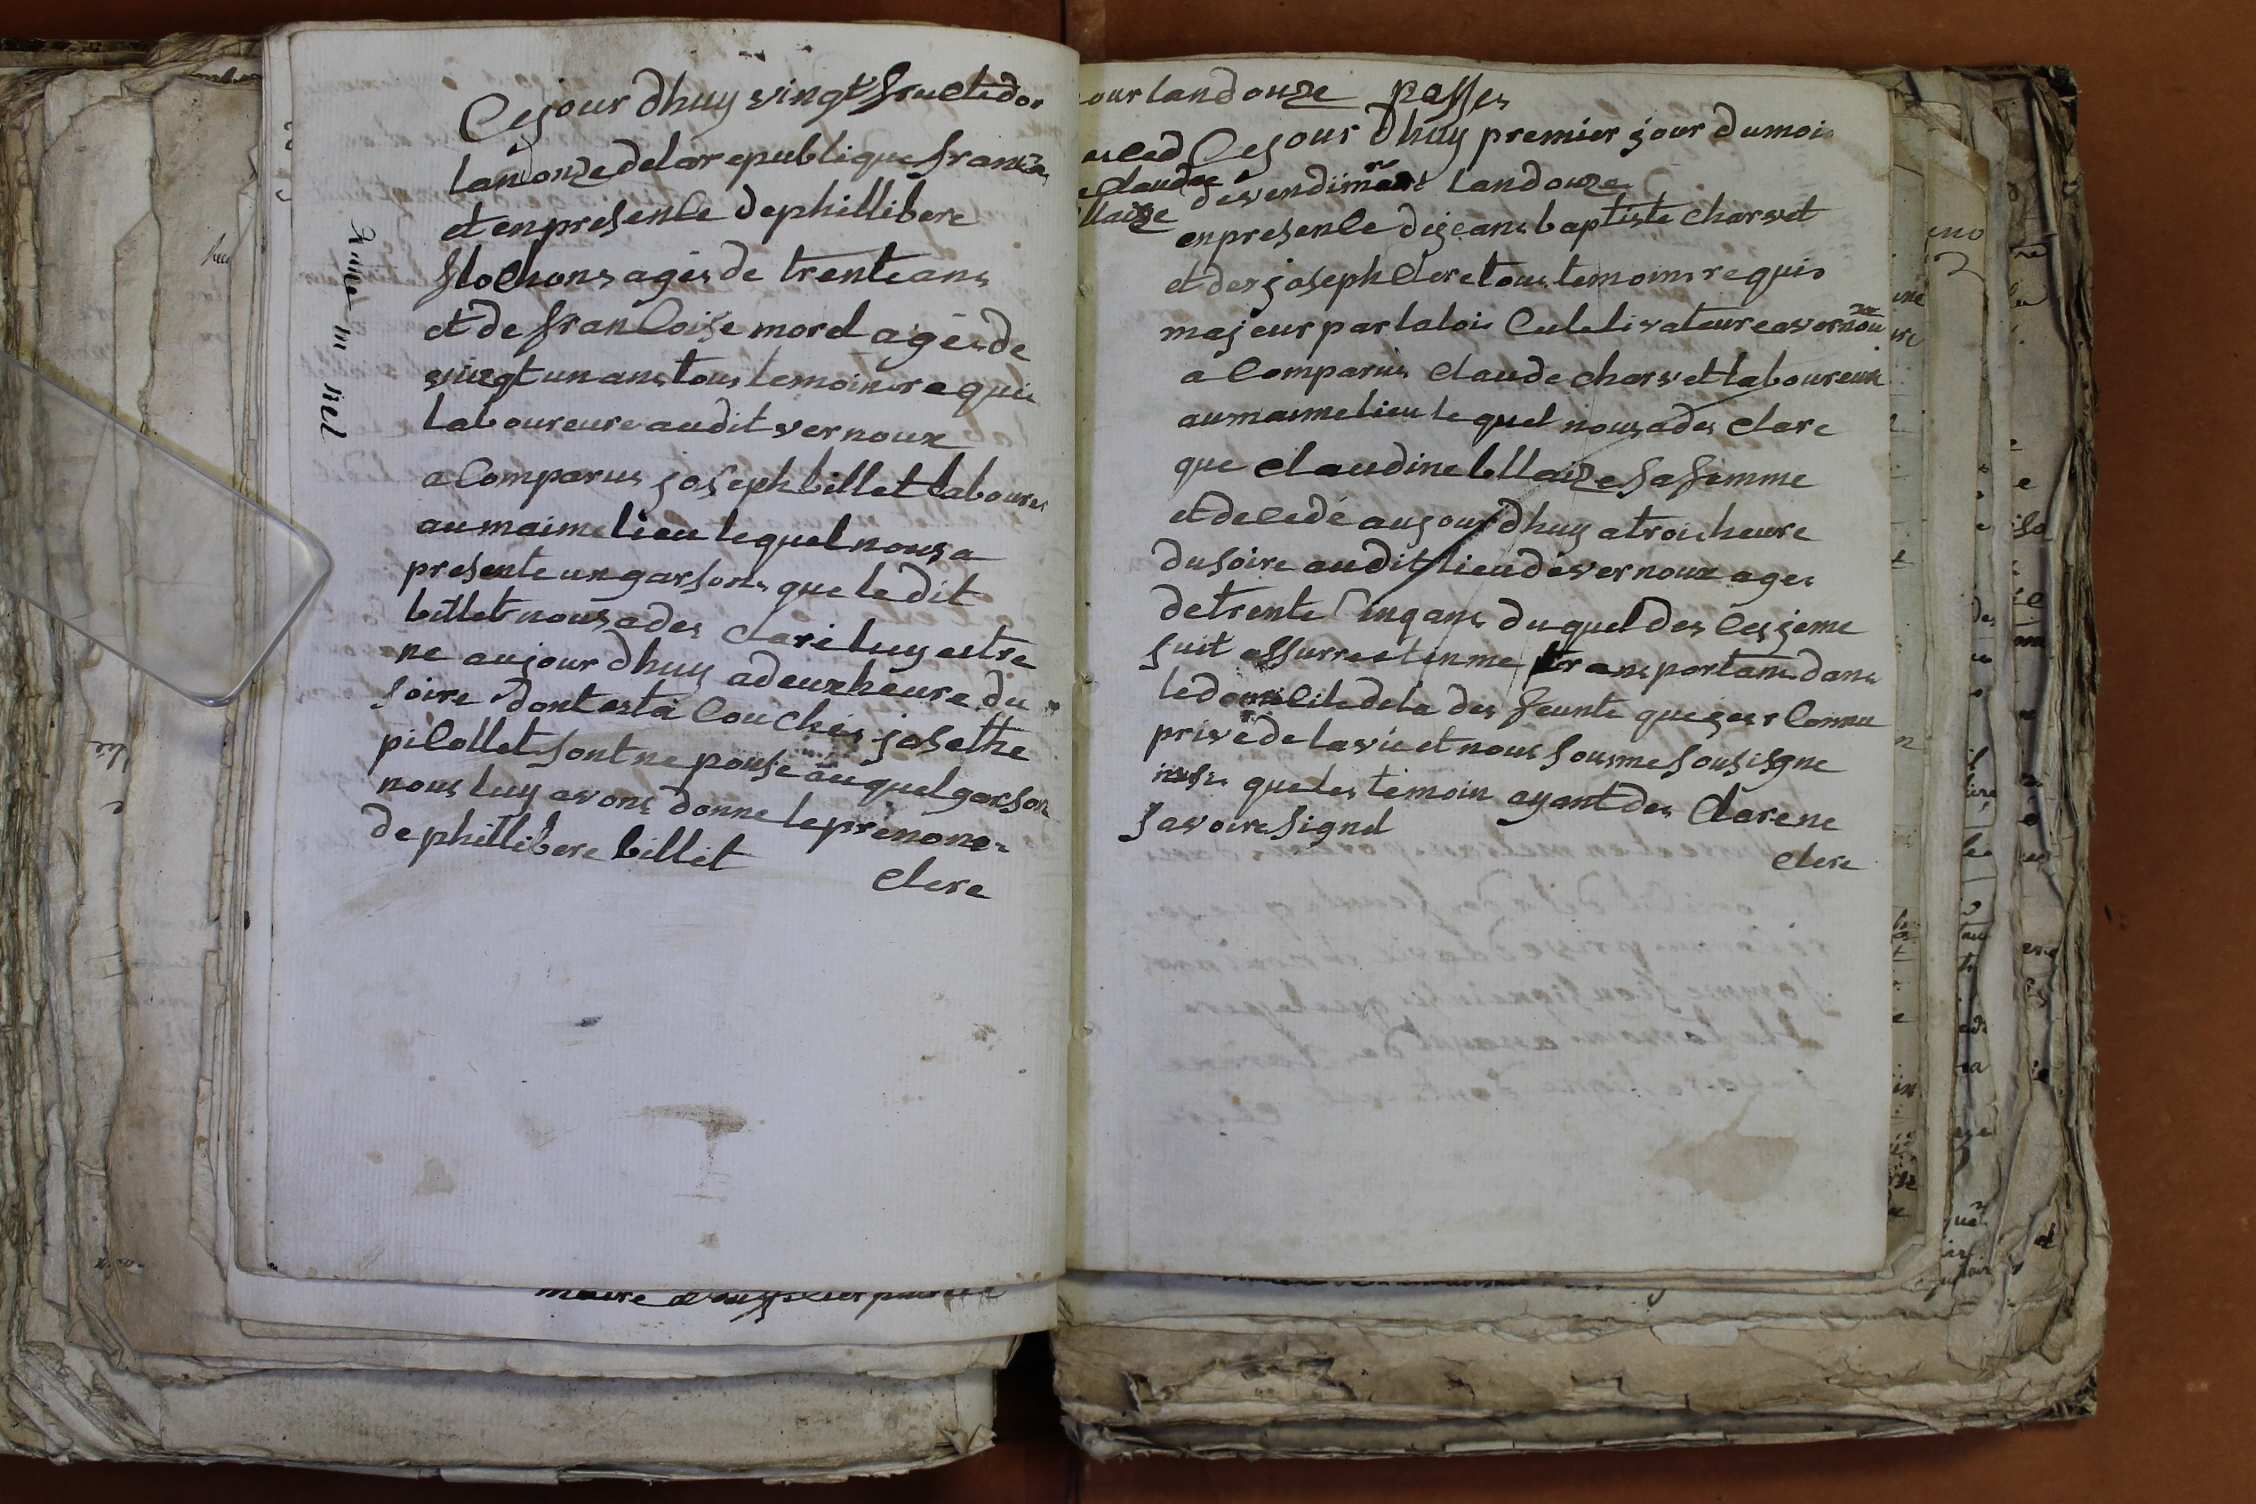 Cejour dhuy vingt fructidor
lan onze delar epublique franse
et en presenle dephillibere
flochons agés de trente ans
et de franloise morel agés de
vingt un ans tous temoins requis
laboureure audit vernoux
a Comparus joseph billet laboure
au maime lieu lequel nous a
presente un garsons que ledit
billet nous a des claré luy estre
ne aujour dhuy a deux heure du
soire dont esta Couchés josethe
pilollet sont ne pouse auquel garson
nous luy avons donne le prenons
de phillibere billet
clere
our landouze passes
Cejour dhuy premier jour dumois
claudine
llaize
devendimare landouze
en presenle dejeans baptiste charvet
et der joseph Clere tous temoins requis
majeur par la loi Culelivateure a vernou
a Comparus claude charvet laboureur
au maime lieu lequel nous a des clare
que claudine bllaize sa femme
et delede aujour dhuy a trois heure
dusoire audit lieu de vernoux ages
de trente Cinq ans duquel des Ces jeme
suit assurre et en me transportans dans
ledomicile dela des feunte que jes r Connu
privé de la vie et nous sousme sousisgne
insi que les temoin ayant des Clarene
savoire signel
clere